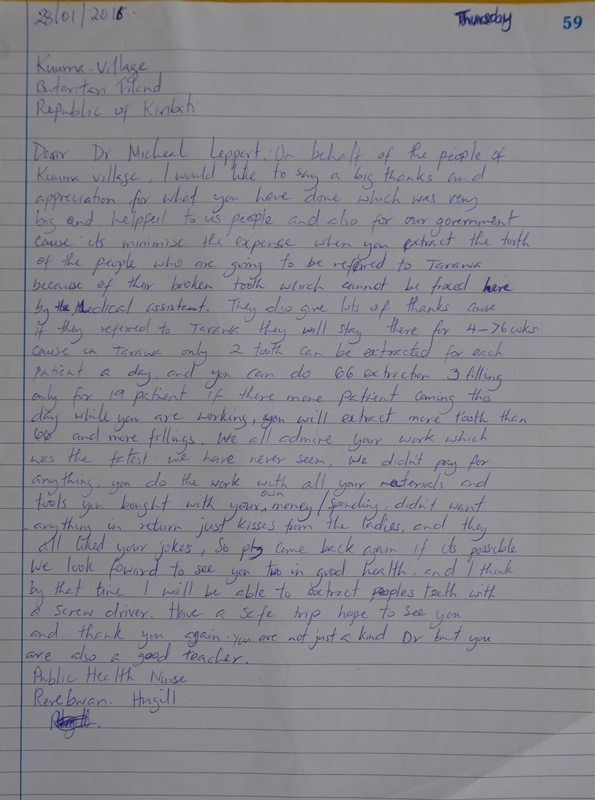 28/01/2016. Thursday 59
Kuuma-Village
Butaritari Island
Republic of Kiribati
Dear Dr Micheal Leppert, On behalf of the people of
Kuuma village, I would like to say a big thanks and
appreciation for what you have done which was very
big and helpfell to us people and also for our government
cause its minimise the expense when you extract the tooth
of the people who are going to be referred to Tarawa
because of their broken tooth which cannot be fixed here
by the Medical assistant. They also give lots of thanks cause
if they referred to Tarawa they will stay there for 4-76wks
cause in Tarawa only 2 tooth can be extracted for each
patient a day, and you can do 66 extraction 3 filling
only for 19 patient if there more patient coming this
day while you are working, you will extract more tooth than
66 and more fillings. We all admire your work which
was the fatest we have never seen, We didn't pay for
anything, you do the work with all your materials and
tools you bought with your own money/spending, didn't want
anything in return just kisses from the ladies, and they
all liked your jokes, So plz come back again if its possible
We look foward to see you two in good health, and I think
by that time I will be able to extract peoples teeth with
a screw driver. Have a safe trip hope to see you
and thank you again. You are not just a kind Dr but you
are also a good teacher.
Public Health Nurse
Rerebwan. Hugill